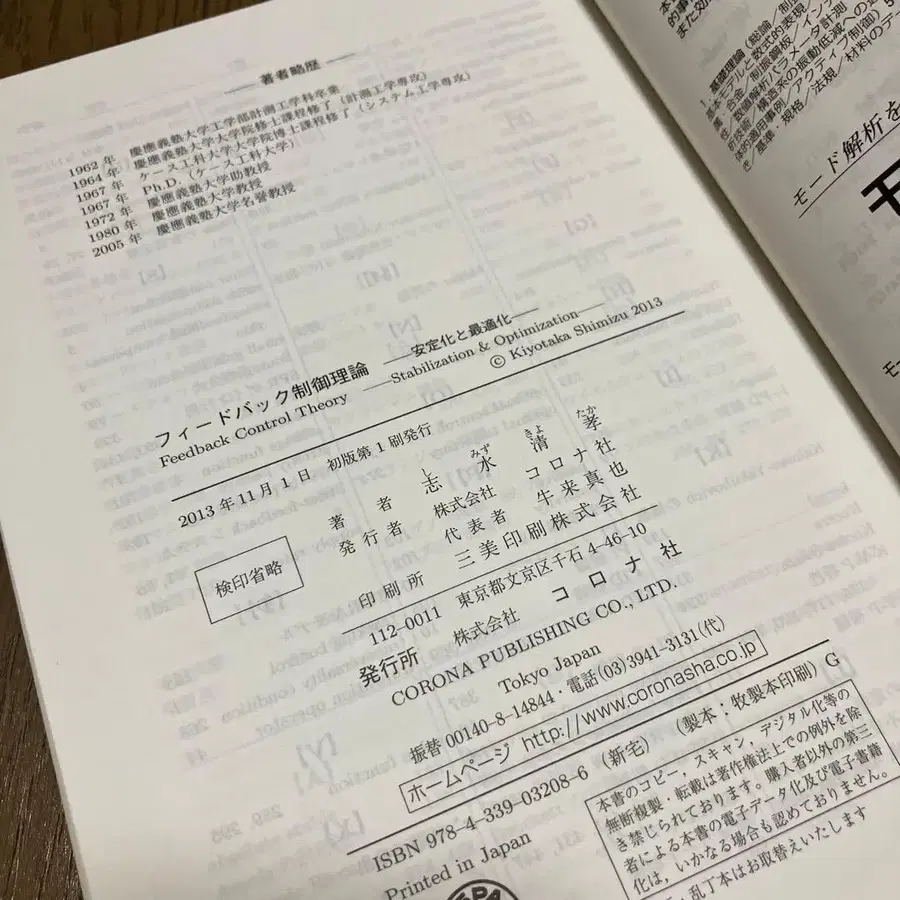 著者略歴
1962年 慶應義塾大学工学部計測工学科卒業
1964年 慶應義塾大学大学院修士課程修了（計測工学専攻）
1967年 ケース工科大学大学院博士課程修了（システム工学専攻）
1967年 Ph.D.（ケース工科大学）
1972年 慶應義塾大学助教授
1980年 慶應義塾大学教授
2005年 慶應義塾大学名誉教授
フィードバック制御理論 ——安定化と最適化——
Feedback Control Theory ——Stabilization & Optimization——
© Kiyotaka Shimizu 2013
2013年11月1日 初版第1刷発行
し みず きよ たか
著者 志水清孝
発行者 株式会社 コロナ社
代表者 牛来真也
印刷所 三美印刷株式会社
112-0011 東京都文京区千石4-46-10
発行所 株式会社 コロナ社
CORONA PUBLISHING CO., LTD.
Tokyo Japan
振替00140-8-14844・電話(03)3941-3131(代)
ホームページ http://www.coronasha.co.jp
ISBN 978-4-339-03208-6 （新宅） （製本：牧製本印刷） G
Printed in Japan
本書のコピー，スキャン，デジタル化等の
無断複製・転載は著作権法上での例外を除
き禁じられております。購入者以外の第三
者による本書の電子データ化及び電子書籍
化は，いかなる場合も認めておりません。
・乱丁本はお取替えいたします
モード解析を